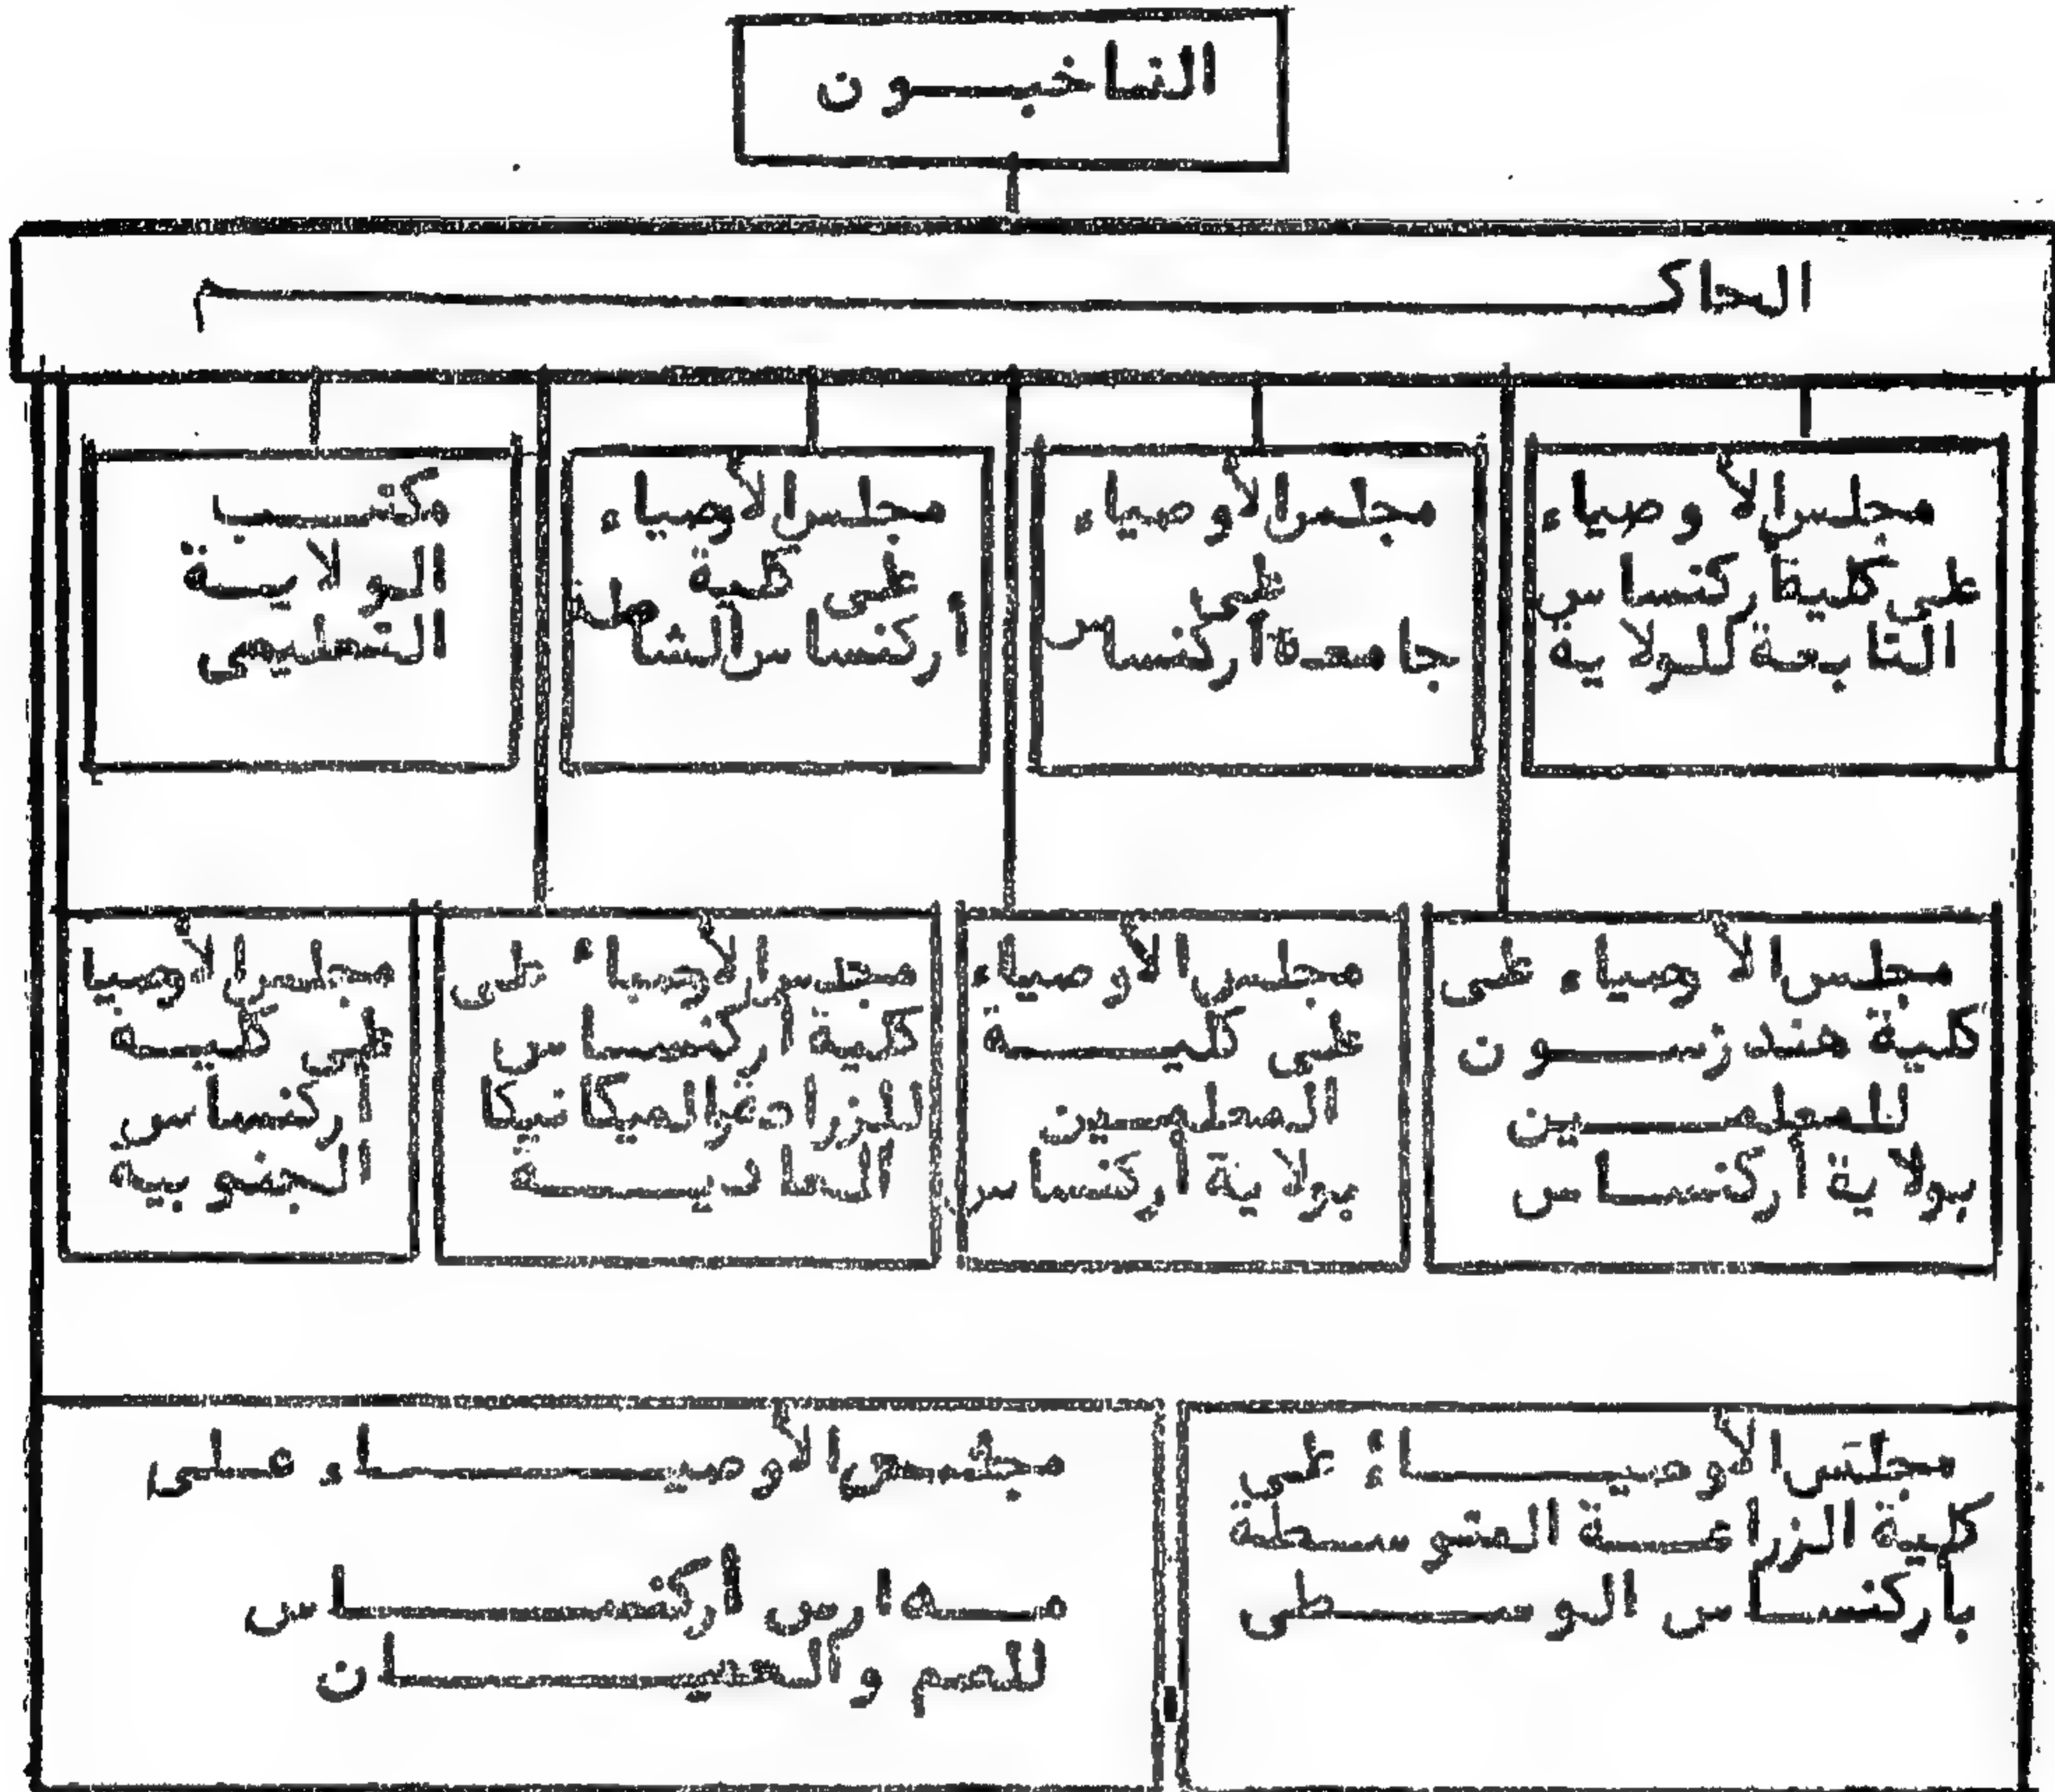 الناخبون
الحاكم
مجلس الأوصياء
على كلية أركنساس
التابعة للولاية
مجلس الأوصياء
على
جامعة أركنساس
مجلس الأوصياء
على كلية
أركنساس الشا
مكتب
الولاية
التعليمى
مجلس الأوصياء على
كلية هندرسون
للمعلمين
بولاية أركنساس
مجلس الأوصياء
على كلية
المعلمين
بولاية أركنساس
مجلس الأوصياء على
كلية أركنساس
للزراعة والميكانيكا
مجلس الأوصيا
على كلية
أركنساس
الجنوبية
مجلس الأوصياء على
كلية الزراعة المتوسطة
بأركنساس الوسطى
مجلس الأوصياء على
مدارس أركنساس
للصم والعميان